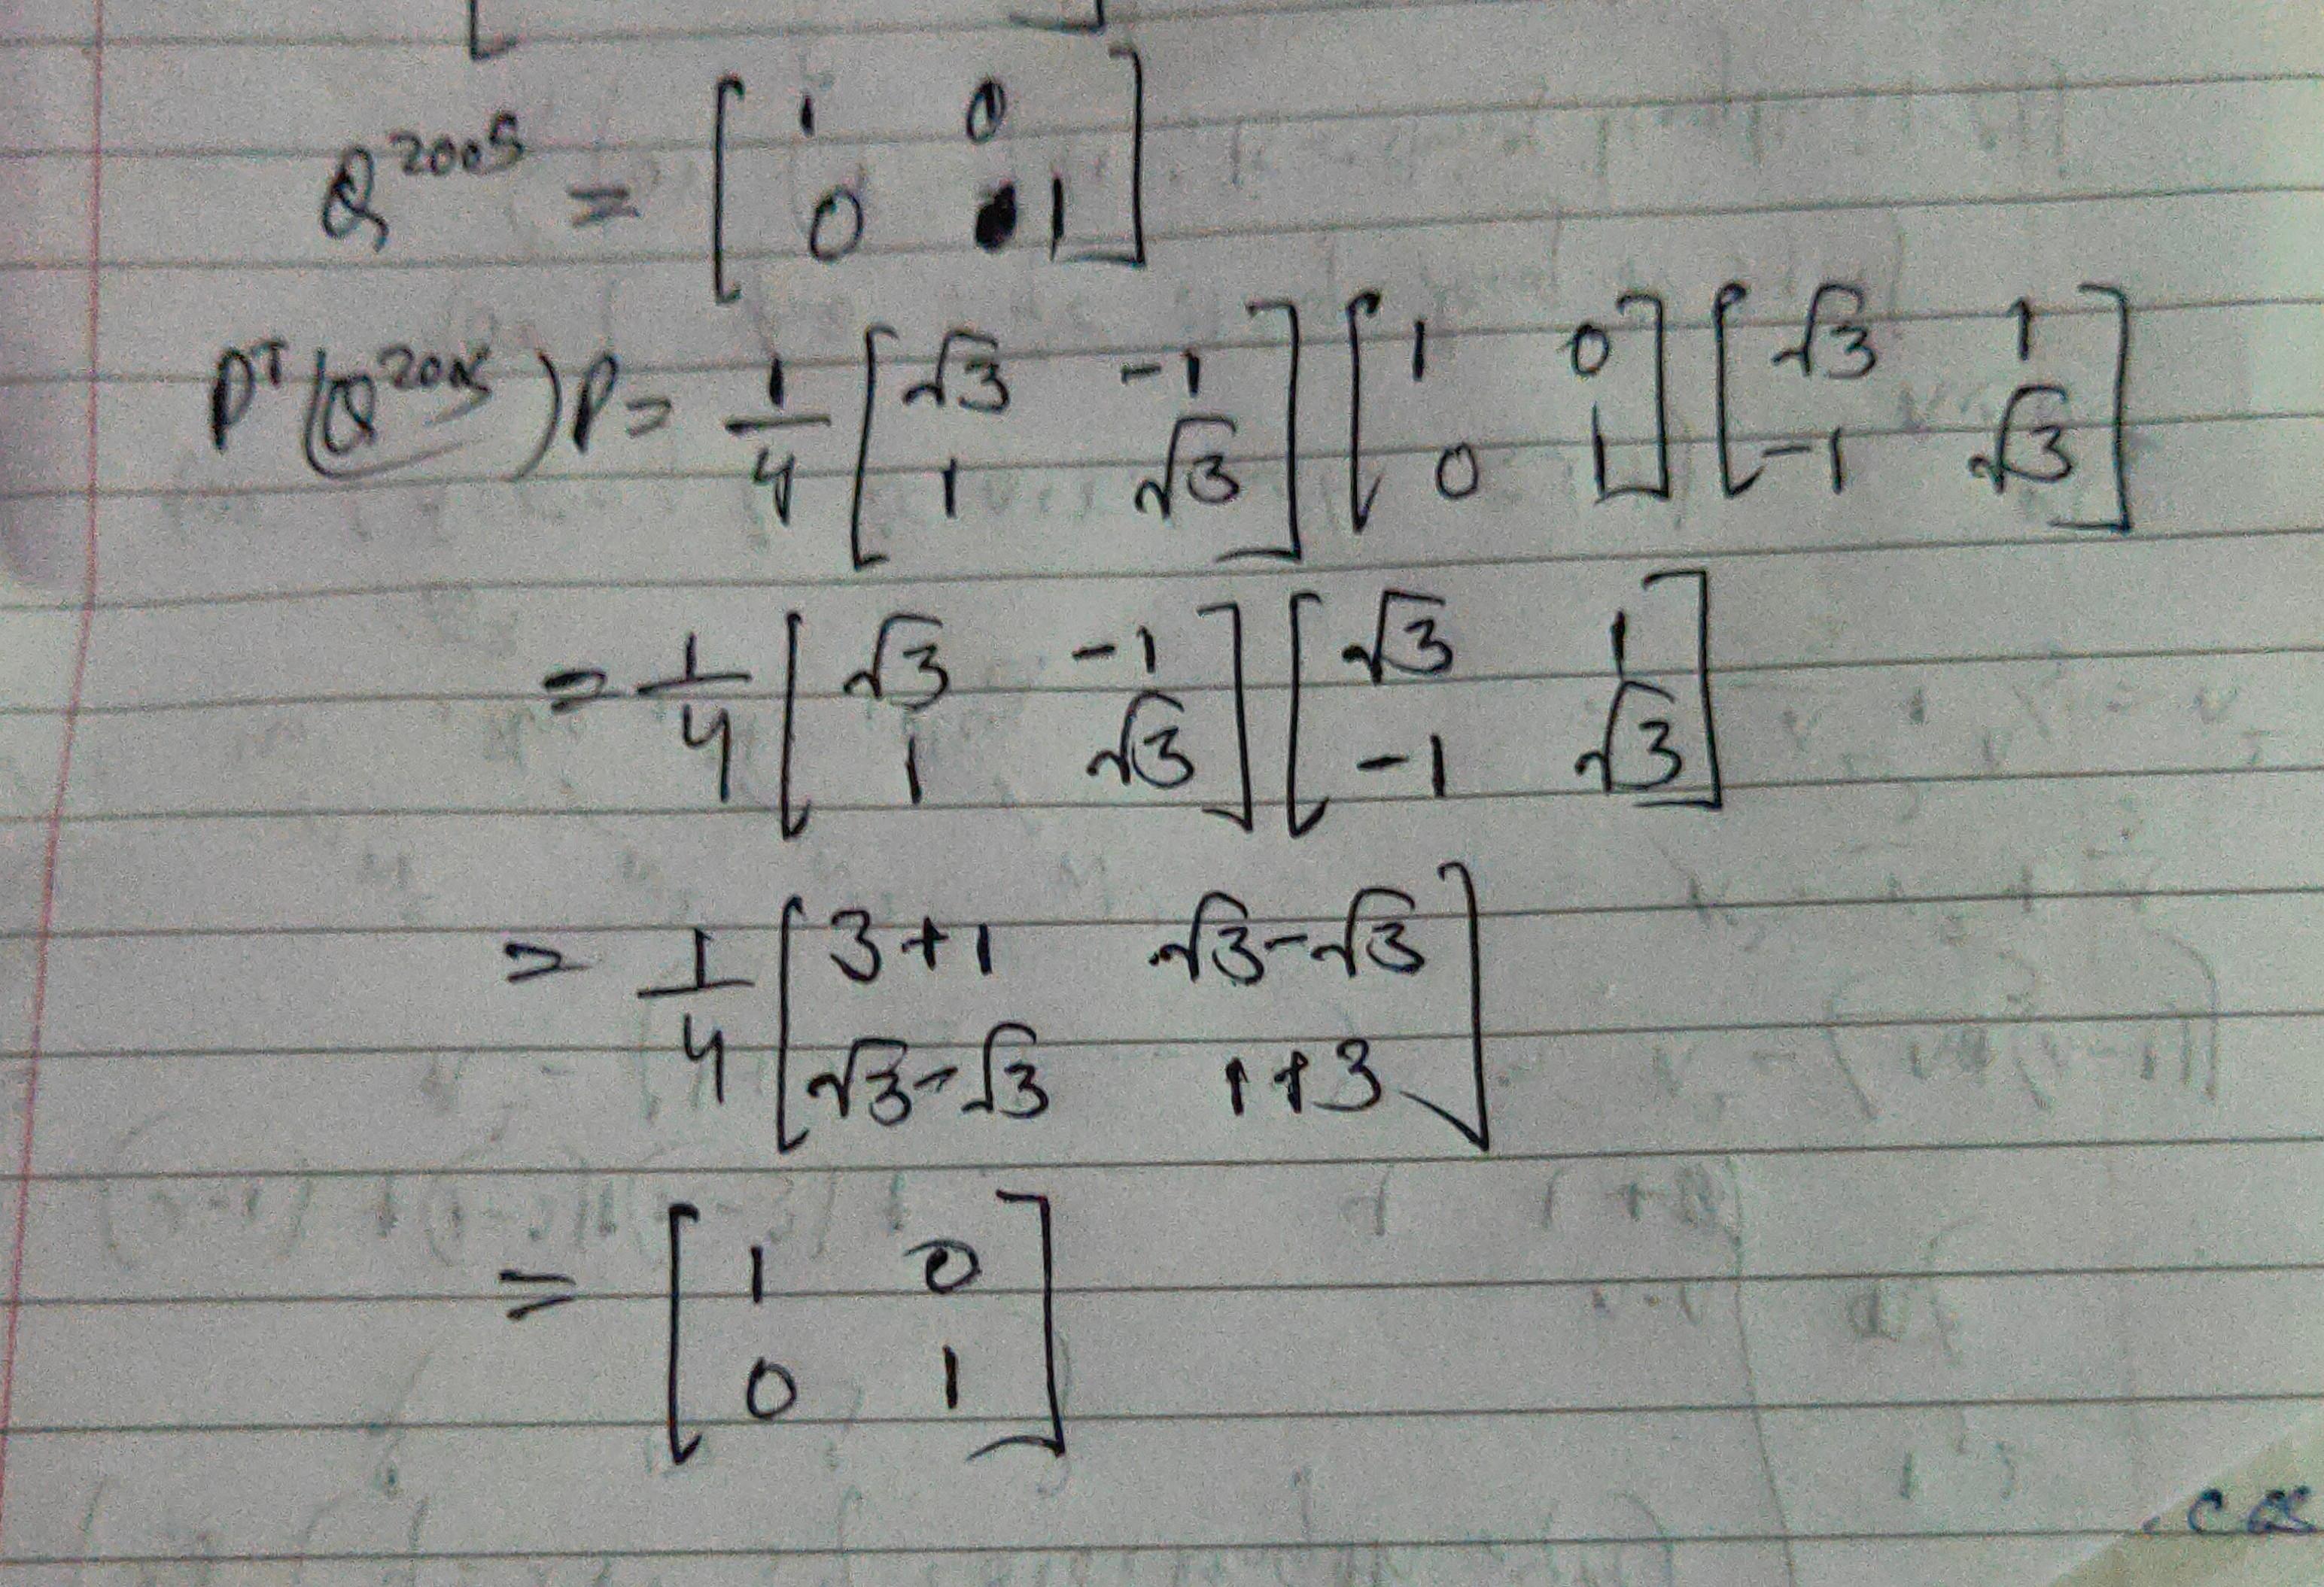 Q^2005 = [1 0; 0 1]
P^T(Q^2005)P = 1/4 [√3 -1; 1 √3] [1 0; 0 1] [√3 1; -1 √3]
= 1/4 [√3 -1; 1 √3] [√3 1; -1 √3]
= 1/4 [3+1 √3-√3; √3-√3 1+3]
= [1 0; 0 1]